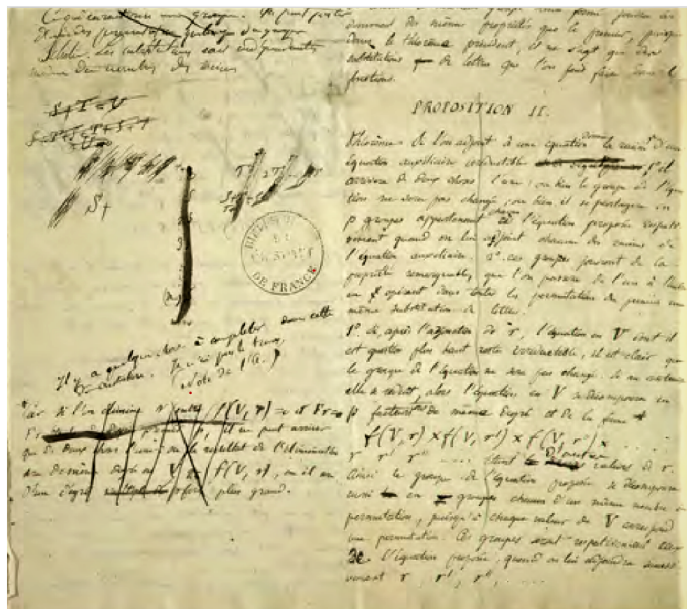 Ce qui caractérise un groupe. On peut partir
d'une des permutations quelconque d'un groupe
Scholie. Les substitutions sont indépendantes
même du nombre des racines
S+T=V
S+
BIBLIOTHEQUE
DE FRANCE
Il y a quelque chose à compléter dans cette
démonstration. Je n'ai pas le temps
(note de l'A.)
Car si l'on élimine r entre f(V,r)=0 et Fr=0
que de deux choses l'une: ou le résultat de l'élimination
sera de même degré en V que f(V, r), ou il en
d'un degré plus grand.
jouiront de même propriété que le premier, puisque
dans le théorème précédent, il ne s'agit que des
substitutions de lettres que l'on peut faire dans les
fonctions.
PROPOSITION II.
Théorème Si l'on adjoint à une équation donnée la racine r d'une
équation auxiliaire irréductible
arrivera de deux choses l'une: ou bien le groupe de l'équa-
tion ne sera pas changé, ou bien il se partagera en
p groupes appartenant chacun à l'équation proposée respecti-
vement quand on lui adjoint chacune des racines de
l'équation auxiliaire. 2° ces groupes jouiront de la
propriété remarquable, que l'on passera de l'un à l'autre
en opérant dans toutes les permutations du premier une
même substitution de lettres.
1°. Si, après l'adjonction de r, l'équation en V dont il
est question plus haut reste irréductible, il est clair que
le groupe de l'équation ne sera pas changé. Si au contraire
elle se réduit, alors l'équation en V se décomposera en
p facteurs de même degré et de la forme
f(V,r) × f(V,r') × f(V,r'') ×
r r' r'' .... étant d'autres valeurs de r.
Ainsi le groupe de l'équation proposée se décomposera
aussi en groupes chacun d'un même nombre de
permutations, puisqu'à chaque valeur de V correspond
une permutation. Ces groupes seront respectivement ceux
de l'équation proposée, quand on lui adjoindra successi-
vement r, r', r'', ....